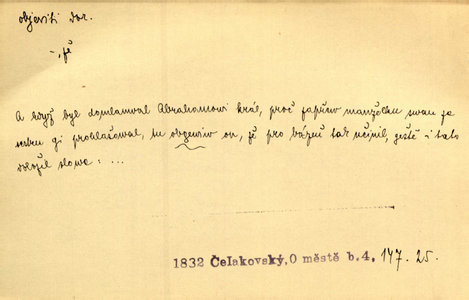 objeviti dok.
-, žě
A když byl domlauwal Abrahamowi král, proč zapřew manželku swau za
sestru gi prohlašowal, tu obgewiw on, žě pro bázeň tak učinil, geště i tato
doložil slowa: ...
1832 Čelakovský, O městě b.4, 147. 25.